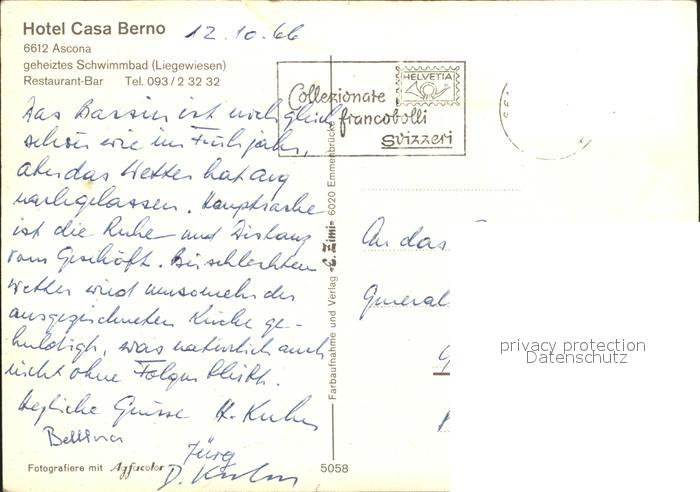 Hotel Casa Berno
12.10.66
6612 Ascona
geheiztes Schwimmbad (Liegewiesen)
Restaurant-Bar Tel. 093/2 32 32
Das Bassin ist noch gleich
schön wie im Frühjahr,
aber das Wetter hat arg
nachgelassen. Hauptsache
ist die Ruhe und Distanz
vom Geschäft. Bei schlechtem
Wetter wird umsomehr der
ausgezeichneten Küche ge-
huldigt, was natürlich auch
nicht ohne Folgen bleibt.
Herzliche Grüsse H. Kuhn
Bettina
Jürg
D. Kuhn
Fotografiere mit Agfacolor
5058
Farbaufnahme und Verlag «E. Zimi» 6020 Emmenbrücke
HELVETIA
Collezionate
francobolli
svizzeri
An das
General
privacy protection
Datenschutz